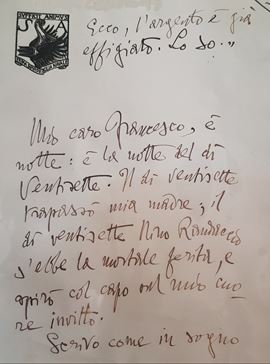 Ecco, l'argento è già
effigiato. Lo so..
Mio caro Francesco, è
notte: è la notte del dì
Ventisette. Il dì ventisette
trapassò mia madre; il
dì ventisette Nino Randaccio
s'ebbe la mortale ferita, e
spirò col capo sul mio cuo-
re invitto.
Scrivo come in sogno